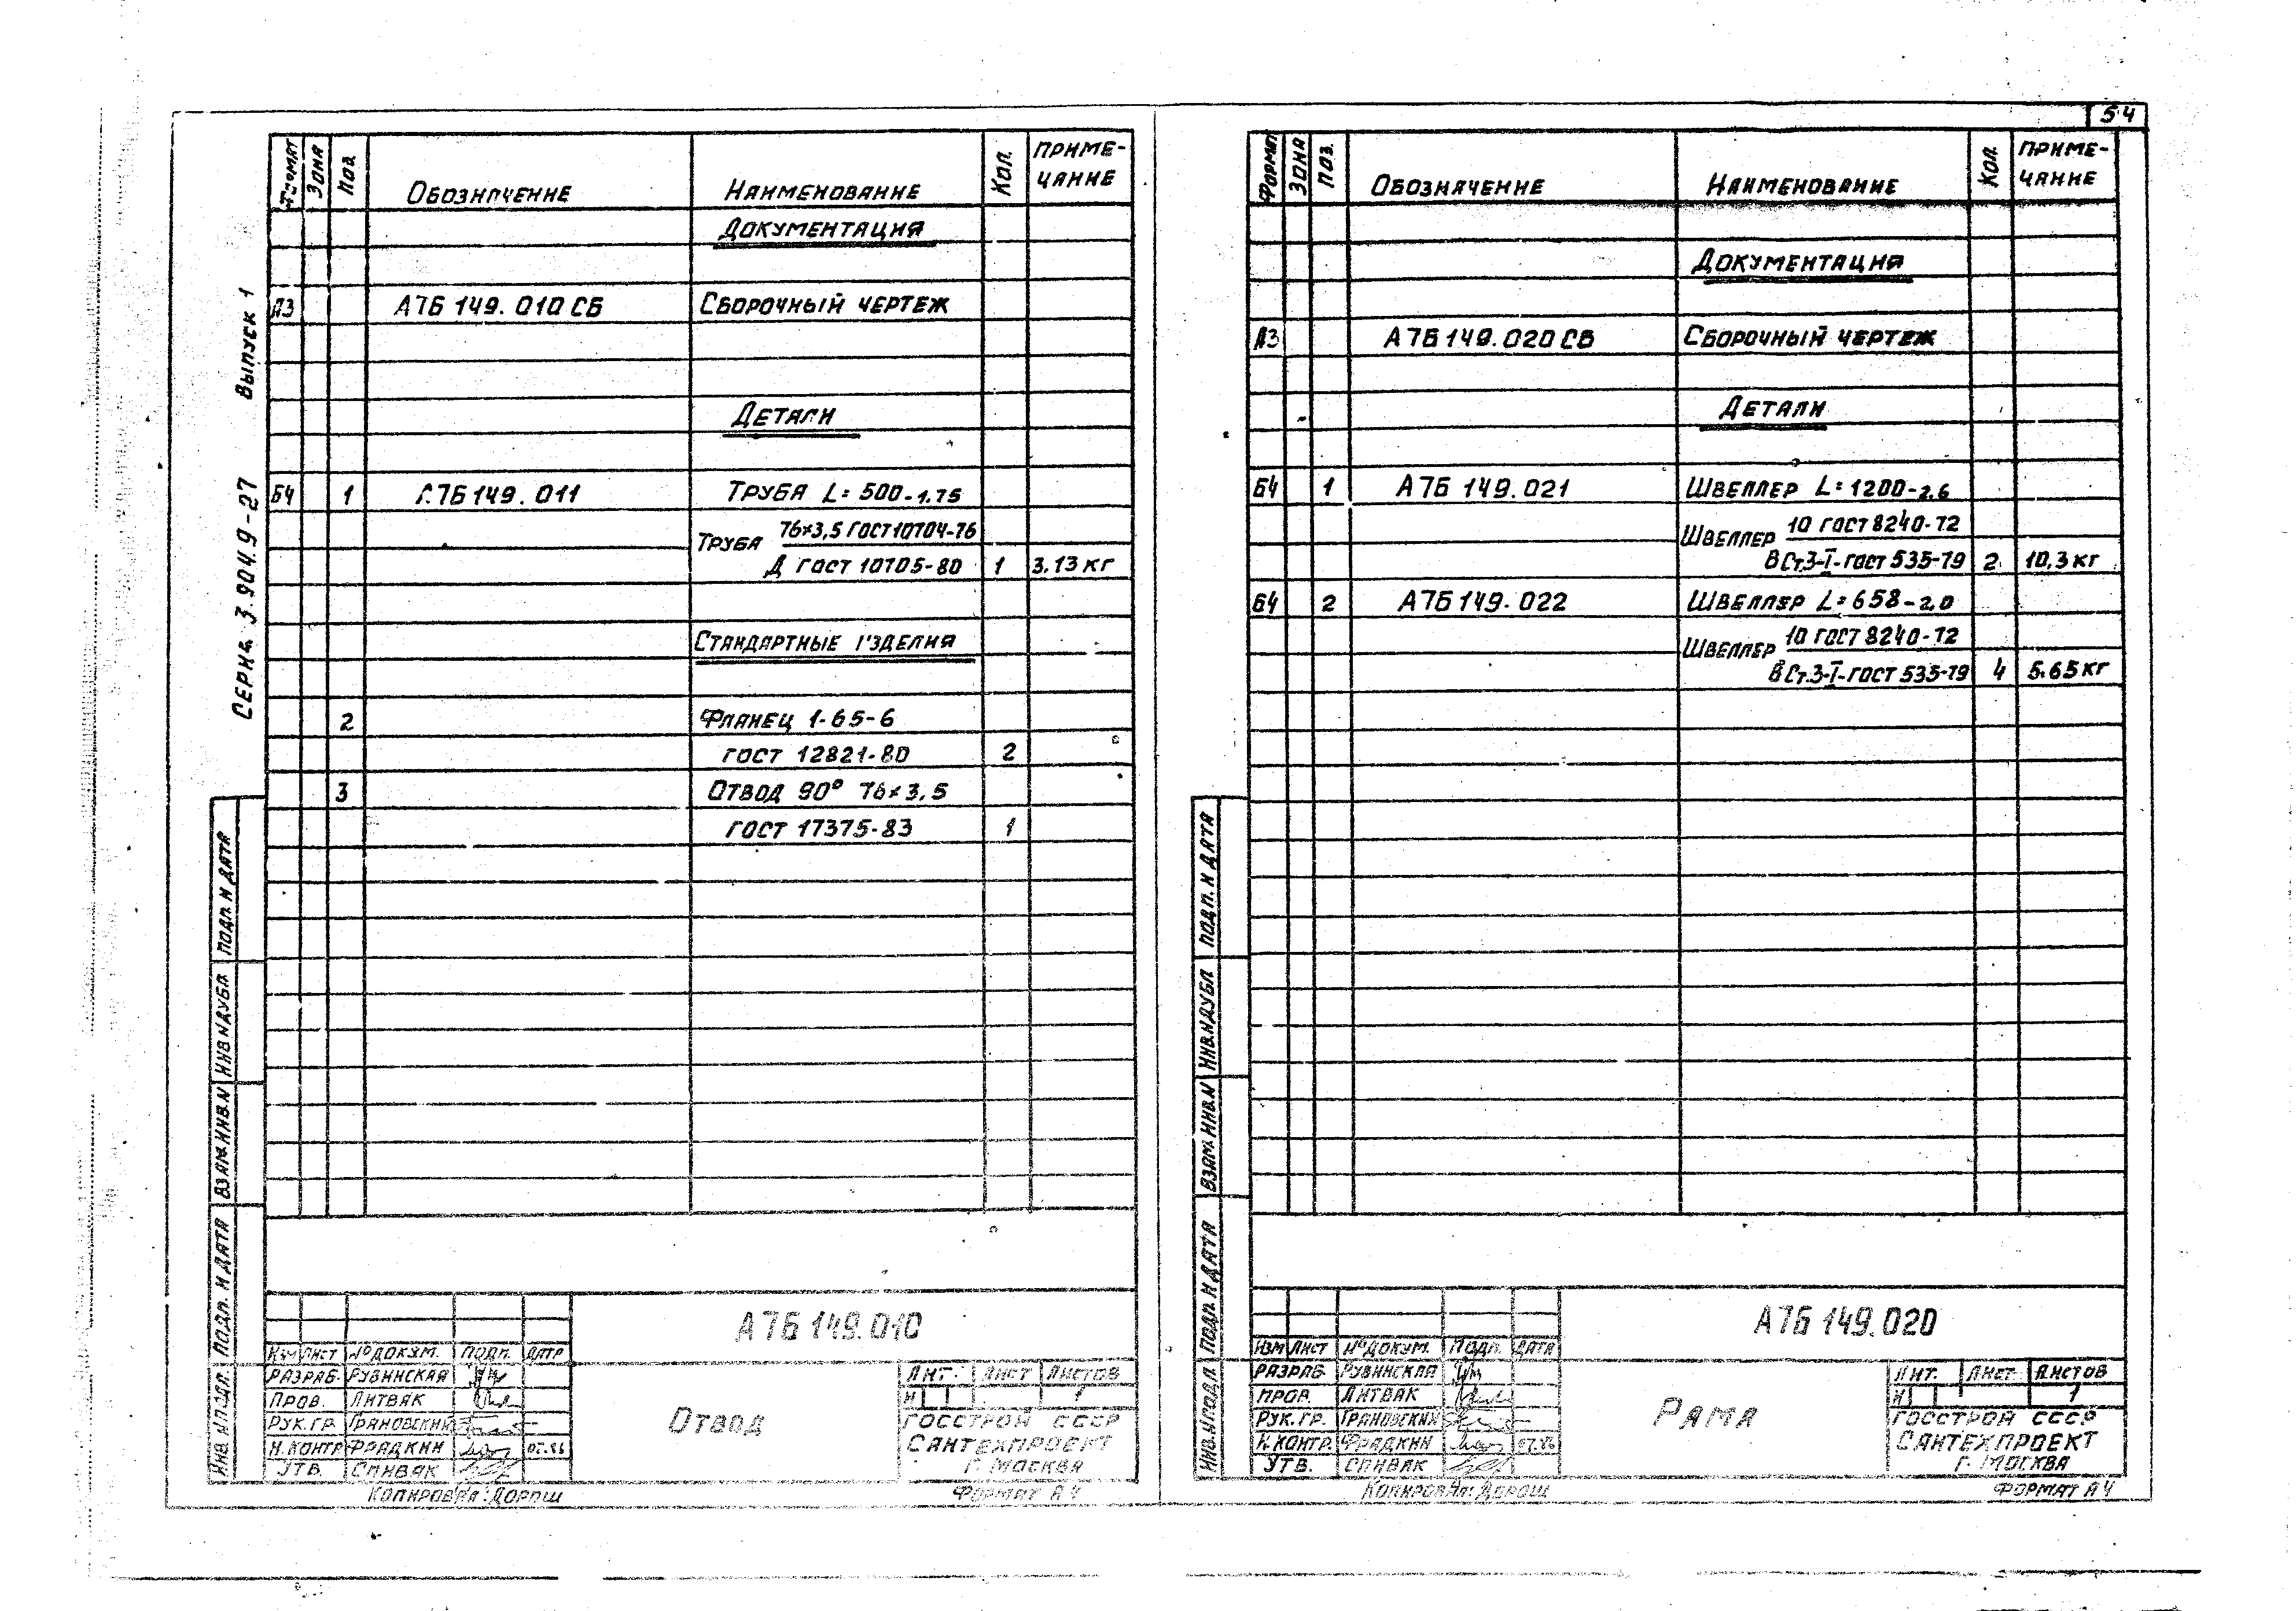 54
Серия 3.904.9-27 Выпуск 1
Формат Зона Поз. Обозначение Наименование Кол. Приме-
чание
Документация
А3 А7Б 149.010 СБ Сборочный чертеж
Детали
Б4 1 А7Б 149.011 Труба L=500-1,75
Труба 76×3,5 ГОСТ 10704-76
Д ГОСТ 10705-80 1 3.13 кг
Стандартные изделия
2 Фланец 1-65-6
ГОСТ 12821-80 2
3 Отвод 90° 76×3,5
ГОСТ 17375-83 1
Подп. и дата
Инв N дубл
Взам. инв. N
Подп. и дата
Инв. N подл.
А7Б 149.010
Изм Лист № докум. Подп. Дата
Разраб. Рувинская
Пров. Литвак
Рук. гр. Грановский
Н. контр Фрадкин 07.86
Утв. Спивак
Отвод
Лит. Лист Листов
И 1
Госстрой СССР
Сантехпроект
г. Москва
Копировал: Дорош Формат А4
Формат Зона Поз. Обозначение Наименование Кол. Приме-
чание
Документация
А3 А7Б 149.020 СБ Сборочный чертеж
Детали
Б4 1 А7Б 149.021 Швеллер L=1200-2,6
Швеллер 10 ГОСТ 8240-72
ВСт.3-I-ГОСТ 535-79 2 10,3 кг
Б4 2 А7Б 149.022 Швеллер L=658-2,0
Швеллер 10 ГОСТ 8240-72
ВСт.3-I-ГОСТ 535-79 4 5.65 кг
Подп. и дата
Инв. N дубл
Взам. инв. N
Подп. и дата
Инв. N подл.
А7Б 149.020
Изм Лист № докум. Подп. Дата
Разраб. Рувинская
Пров. Литвак
Рук. гр. Грановский
Н. контр. Фрадкин 07.86
Утв. Спивак
Рама
Лит. Лист Листов
И 1
Госстрой СССР
Сантехпроект
г. Москва
Копировал: Дорош Формат А4